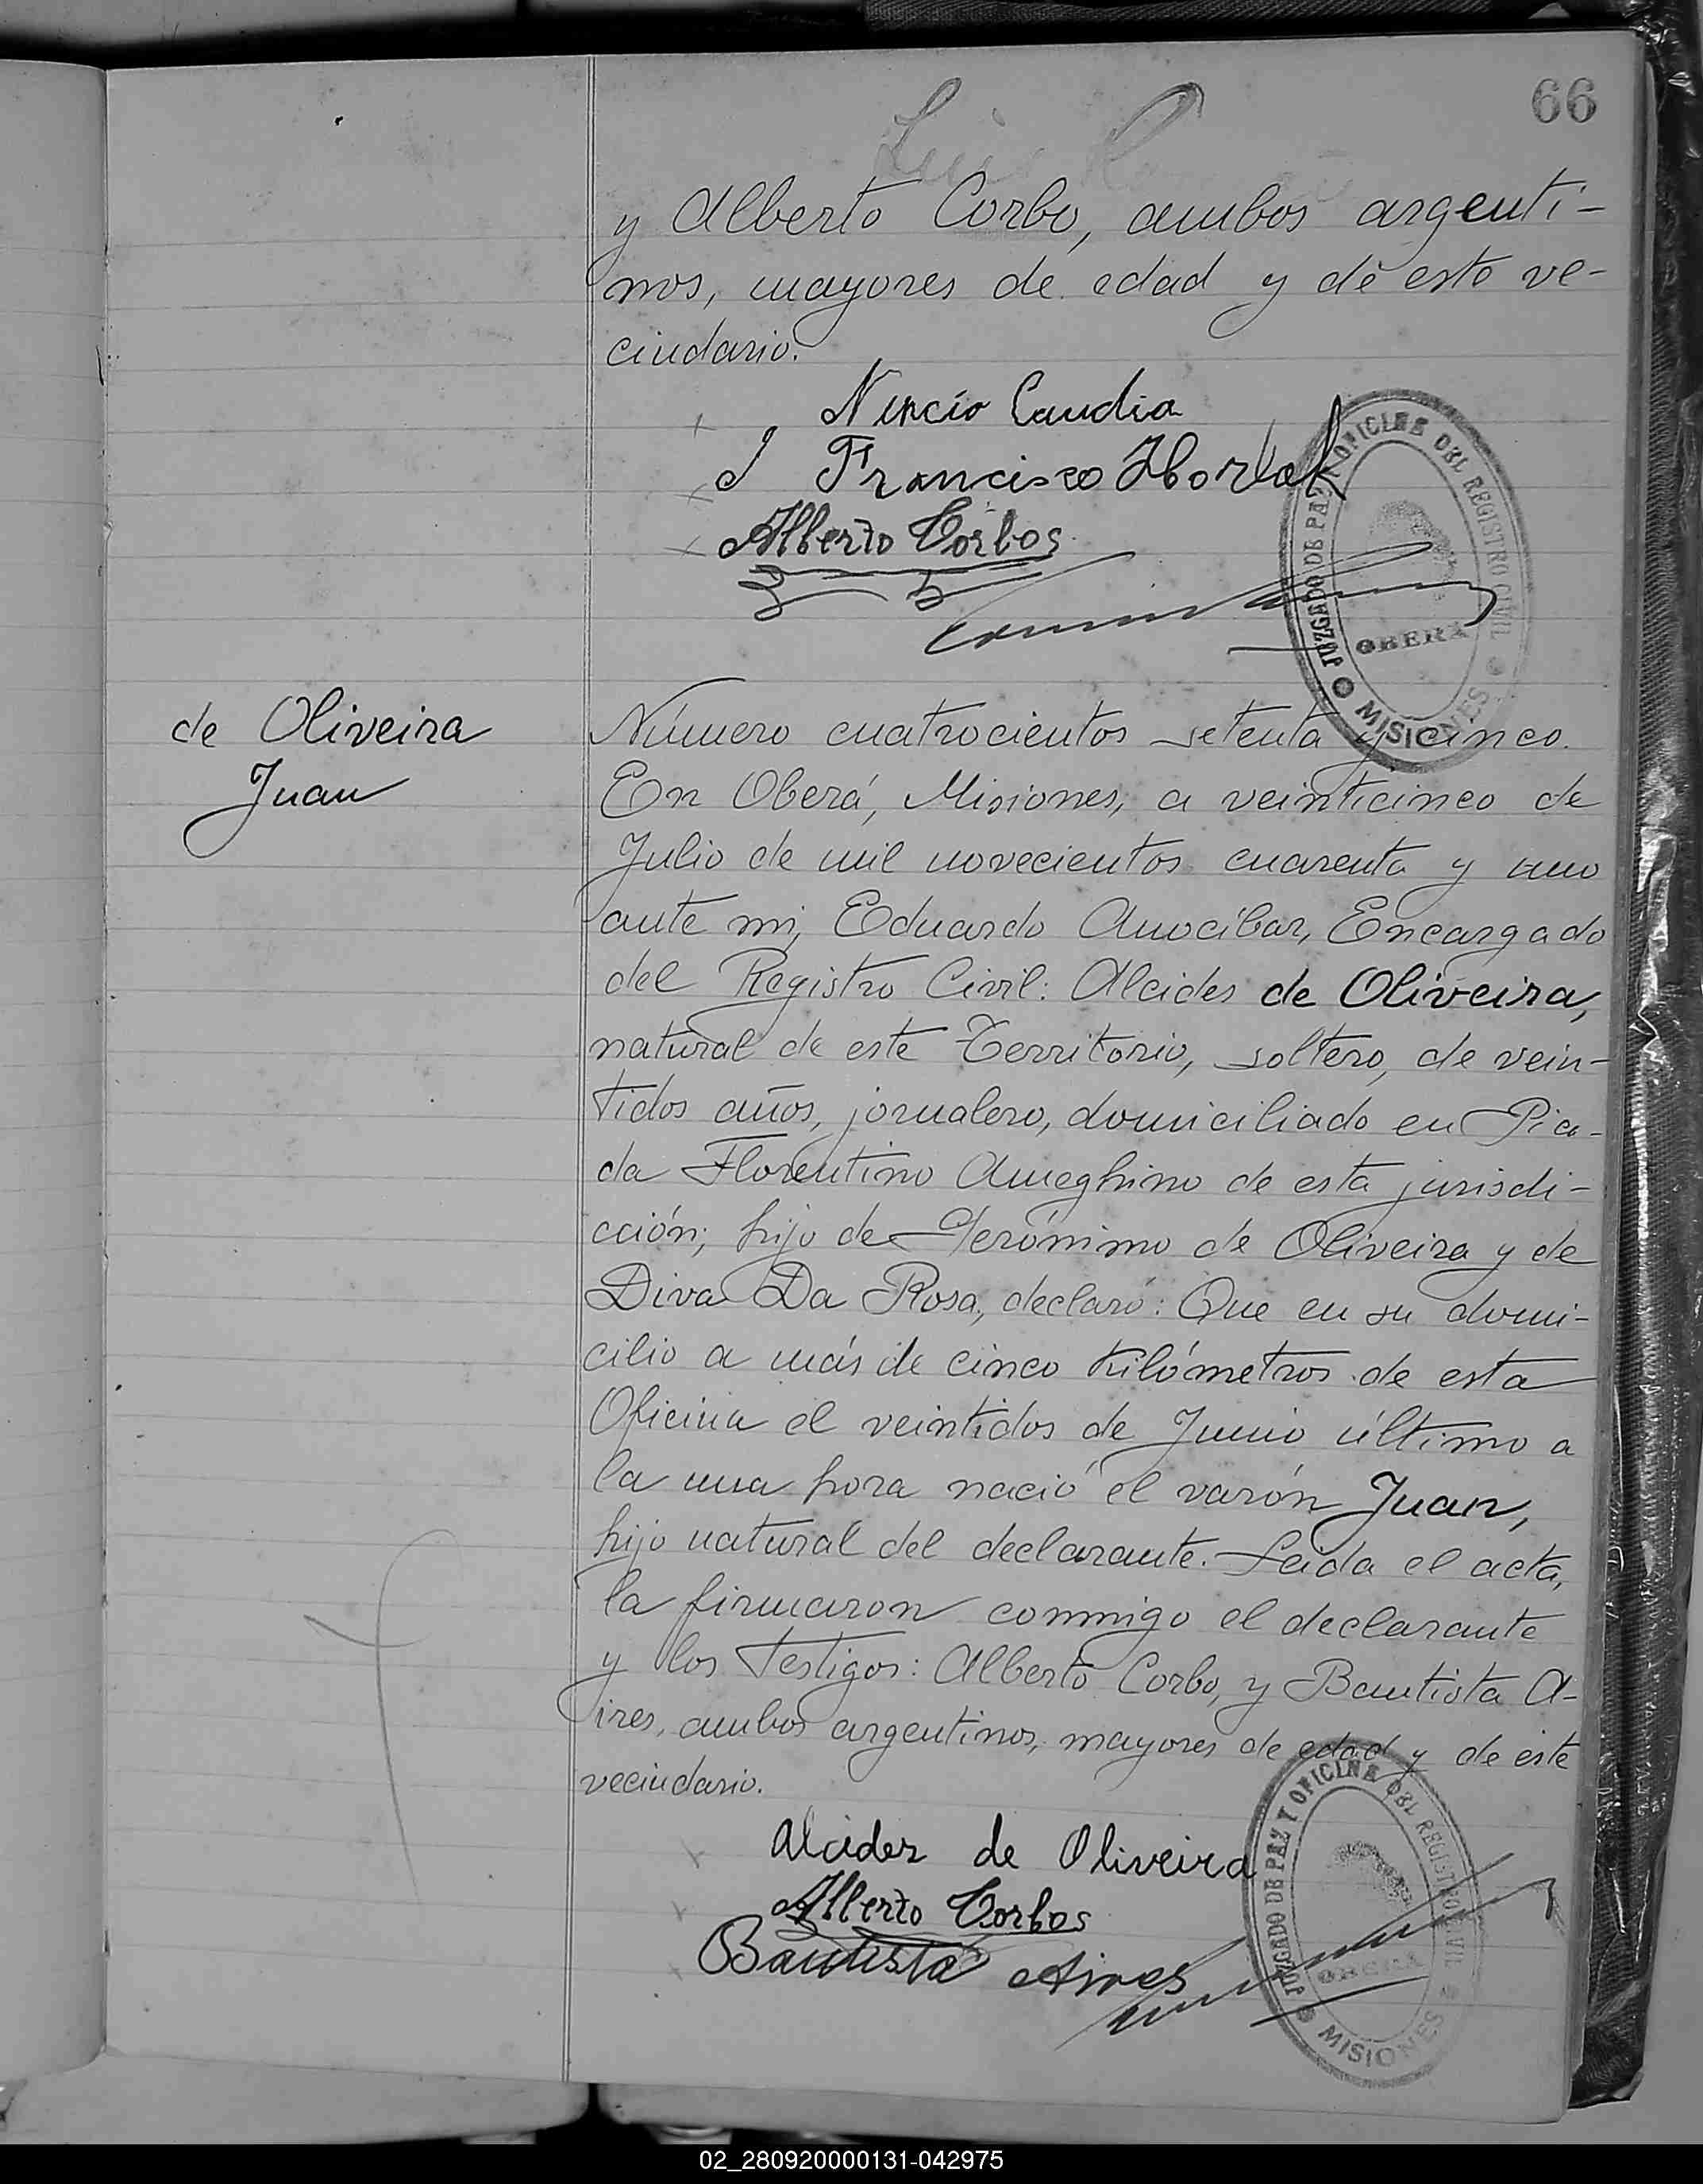 66
y Alberto Corbo, ambos argenti-
nos, mayores de edad y de este ve-
cindario.
Nencio Candia
Francisco Horlak
Alberto Corbos
JUZGADO DE PAZ Y OFICINA DEL REGISTRO CIVIL
OBERÁ
MISIONES
de Oliveira
Juan
Número cuatrocientos setenta y cinco.
En Oberá, Misiones, a veinticinco de
Julio de mil novecientos cuarenta y uno
ante mi, Eduardo Anocíbar, Encargado
del Registro Civil: Alcides de Oliveira,
natural de este Territorio, soltero, de vein-
tidos años, jornalero, domiciliado en Pica-
da Florentino Ameghino de esta jurisdi-
cción; hijo de Gerónimo de Oliveira y de
Diva Da Rosa, declaró: Que en su domi-
cilio a más de cinco kilómetros de esta
Oficina el veintidos de Junio último a
la una hora nació el varón Juan,
hijo natural del declarante. Leida el acta,
la firmaron conmigo el declarante
y los testigos: Alberto Corbo, y Bautista A-
ires, ambos argentinos, mayores de edad y de este
vecindario.
Alcides de Oliveira
Alberto Corbos
Bautista Aires
JUZGADO DE PAZ Y OFICINA DEL REGISTRO CIVIL
OBERÁ
MISIONES
02_280920000131-042975